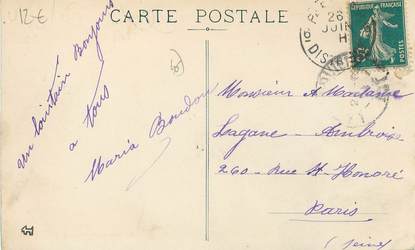 12 €
CARTE POSTALE
26
JUIN
DISTRIB
REPUBLIQUE FRANÇAISE
un lointain Bonjour
a tous
Maria Boudou
Monsieur A Madame
Lagane - Ambroise
260 - Rue St-Honoré
Paris
(Seine)